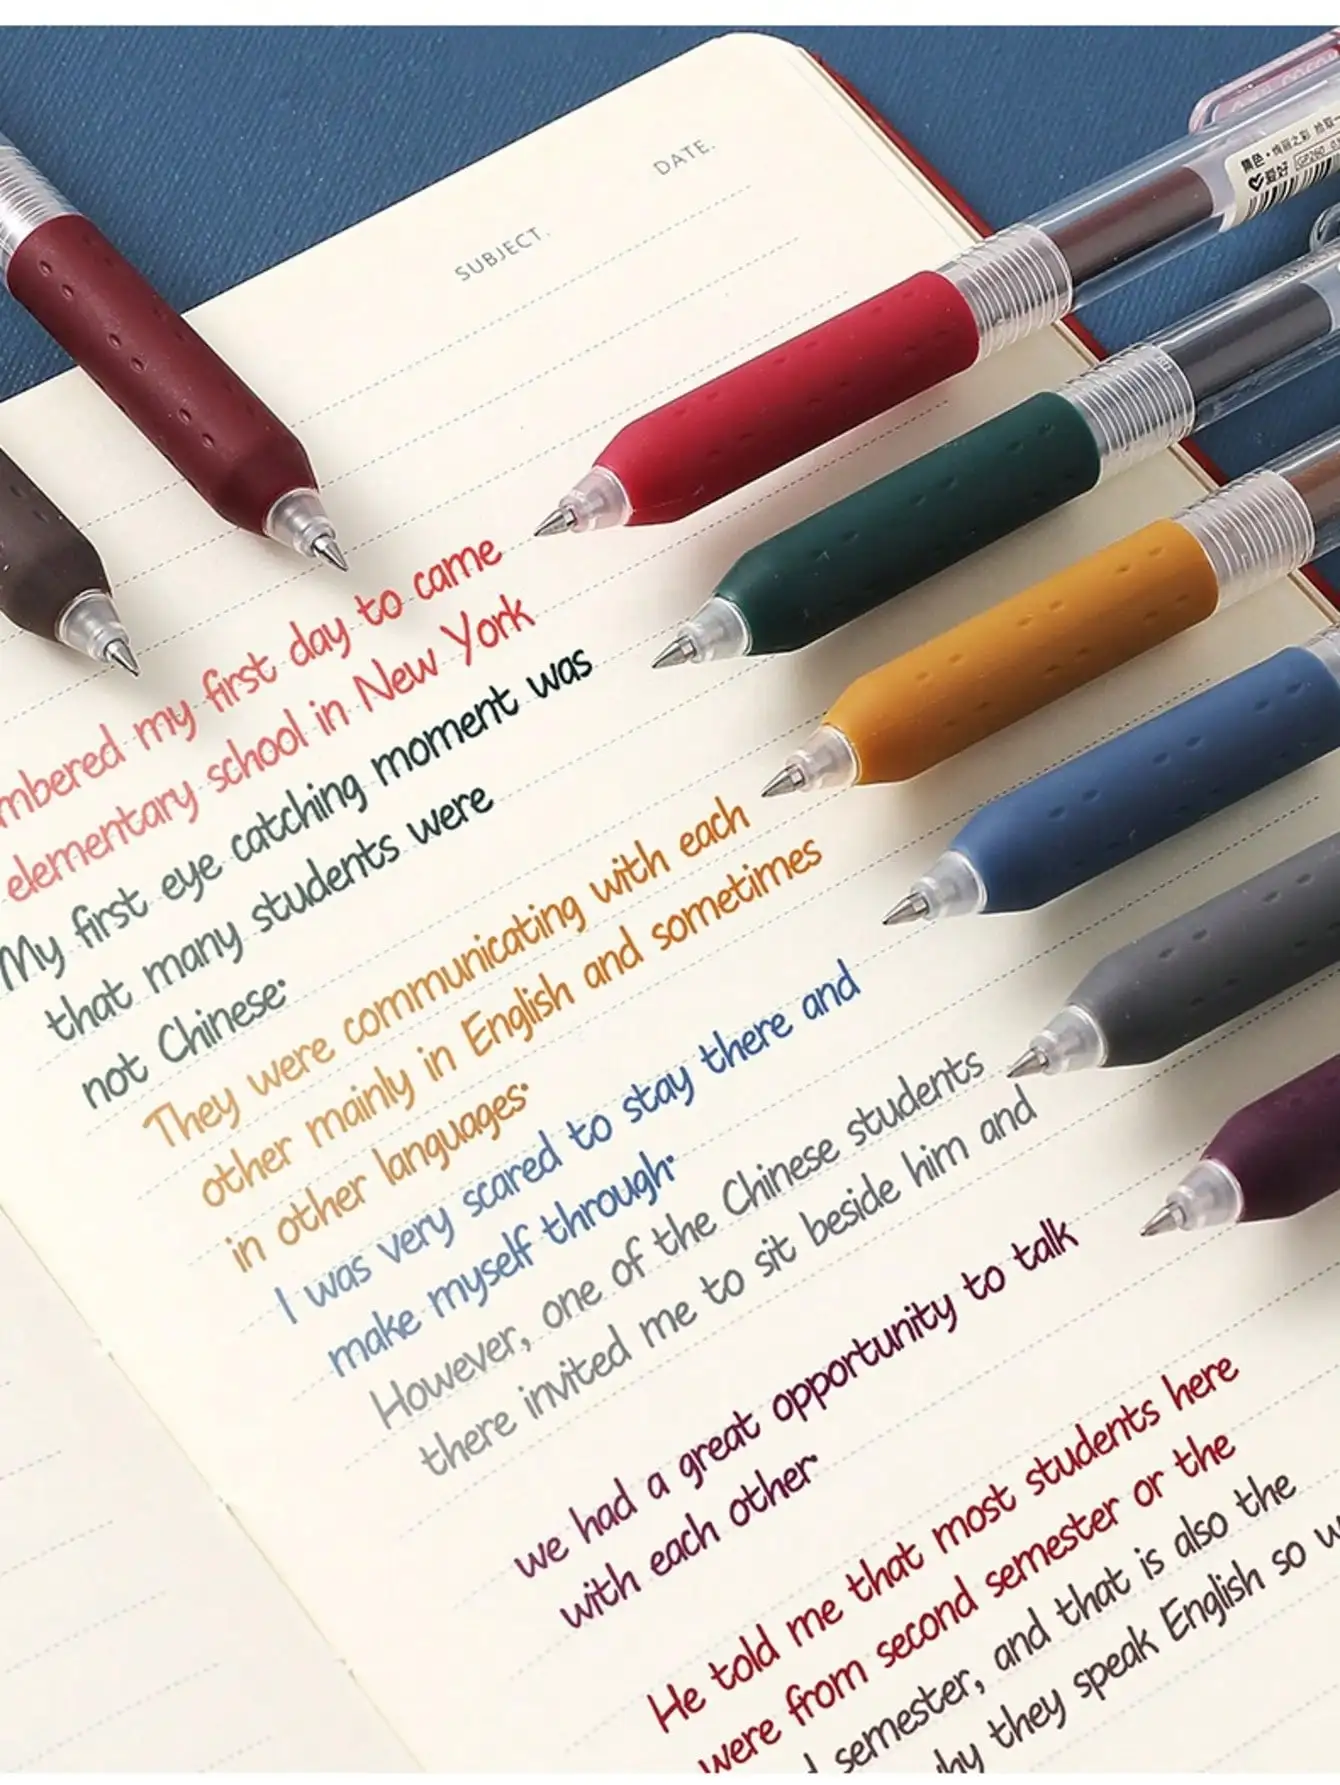 DATE.
SUBJECT.
黑色·绚丽之彩
爱好 GP260
mbered my first day to came
elementary school in New York
My first eye catching moment was
that many students were
not Chinese.
They were communicating with each
other mainly in English and sometimes
in other languages.
I was very scared to stay there and
make myself through.
However, one of the Chinese students
there invited me to sit beside him and
we had a great opportunity to talk
with each other.
He told me that most students here
were from second semester or the
semester, and that is also the
why they speak English so w